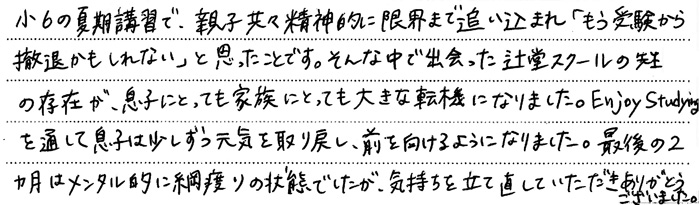 小6の夏期講習で、親子共々精神的に限界まで追い込まれ「もう受験から
撤退かもしれない」と思ったことです。そんな中で出会った辻堂スクールの先生
の存在が、息子にとっても家族にとっても大きな転機になりました。Enjoy Studying
を通して息子は少しずつ元気を取り戻し、前を向けるようになりました。最後の2
カ月はメンタル的に綱渡りの状態でしたが、気持ちを立て直していただきありがとう
ございました。